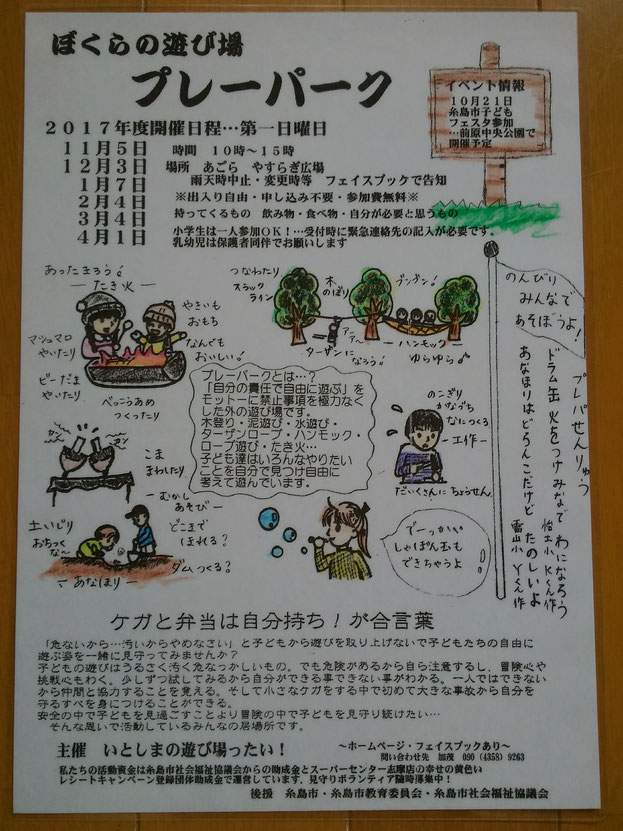 ぼくらの遊び場
プレーパーク
2017年度開催日程…第一日曜日
11月5日 時間 10時～15時
12月3日 場所 あごら やすらぎ広場
1月7日 雨天時中止・変更時等 フェイスブックで告知
2月4日 ※出入り自由・申し込み不要・参加費無料※
3月4日 持ってくるもの 飲み物・食べ物・自分が必要と思うもの
4月1日 小学生は一人参加OK！…受付時に緊急連絡先の記入が必要です。
乳幼児は保護者同伴でお願いします
イベント情報
10月21日
糸島市子ども
フェスタ参加
…前原中央公園で
開催予定
あったまろう！
ーたき火ー
マシュマロ
やいたり
ビーだま
やいたり
べっこうあめ
つくったり
やきいも
おもち
なんでも
おいしい！
つなわたり
スラック
ライン
木
のぼり
ブンブン！
アーアー
ターザンに
なろう！
ーハンモックー
ゆらゆら
のんびり
みんなで
あそぼうよ！
プレーパークとは…？
「自分の責任で自由に遊ぶ」を
モットーに禁止事項を極力なく
した外の遊び場です。
木登り・泥遊び・水遊び・
ターザンロープ・ハンモック・
ロープ遊び・たき火…
子ども達はいろんなやりたい
ことを自分で見つけ自由に
考えて遊んでいます。
のこぎり
かなづち
なにつくる
ー工作ー
だいくさんにちょうせん
プレパせんりゅう
ドラム缶 火をつけみなで わになろう
怡土小 Kくん作
あなほりは どろんこだけど たのしいよ
雷山小 Yくん作
こま
まわしたり
ーむかし
あそびー
土いじり
おちつく
な～
どこまで
ほれる？
ダムつくる？
ーあなほりー
でーっかい
しゃぼん玉も
できちゃうよ
ケガと弁当は自分持ち！が合言葉
「危ないから…汚いからやめなさい」と子どもから遊びを取り上げないで子どもたちの自由に
遊ぶ姿を一緒に見守ってみませんか？
子どもの遊びはうるさく汚く危なっかしいもの。でも危険があるから自ら注意するし、冒険心や
挑戦心もわく。少しずつ試してみるから自分ができる事できない事がわかる。一人ではできない
から仲間と協力することを覚える。そして小さなケガをする中で初めて大きな事故から自分を
守るすべを身につけることができる。
安全の中で子どもを見過ごすことより冒険の中で子どもを見守り続けたい…
そんな思いで活動しているみんなの居場所です。
主催 いとしまの遊び場ったい！ ～ホームページ・フェイスブックあり～
問い合わせ先 加茂 090（4358）9263
私たちの活動資金は糸島市社会福祉協議会からの助成金とスーパーセンター志摩店の幸せの黄色い
レシートキャンペーン登録団体助成金で運営しています．見守りボランティア随時募集中！
後援 糸島市・糸島市教育委員会・糸島市社会福祉協議会